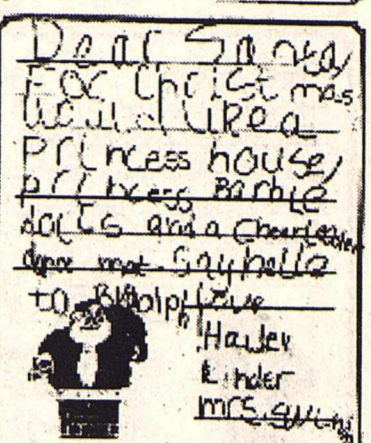 Dear Santa,
For Christmas
would like a
princess house,
princess Barbie
dolls and a Cheerleader
dance mat. Say hello
to Love
Hailey
Kinder
Mrs.